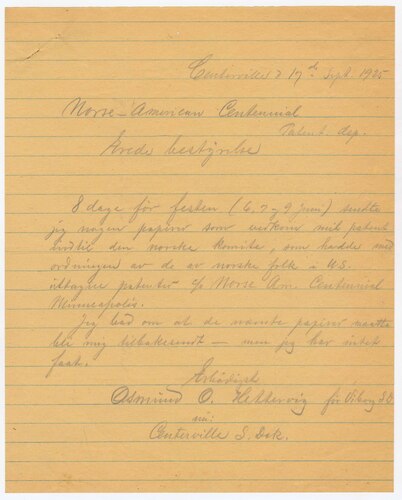 Centerville d 17de Sept. 1925
Norse-American Centennial
Patent dep.
Ærede bestyrelse
8 dage før festen (6, 7 - 9 Juni) sendte
jeg nogen papirer som vedkom mit patent
indtil den norske komite, som hadde med
ordningen av de av norske folk i U.S.
uttagne patenter c/o Norse Am. Centennial
Minneapolis.
Jeg bad om at de nævnte papirer maatte
bli mig tilbakesendt — men jeg har intet
faat.
Ærbødigst
Asmund O. Hettervig før Viborg S.D.
nu:
Centerville S. Dak.